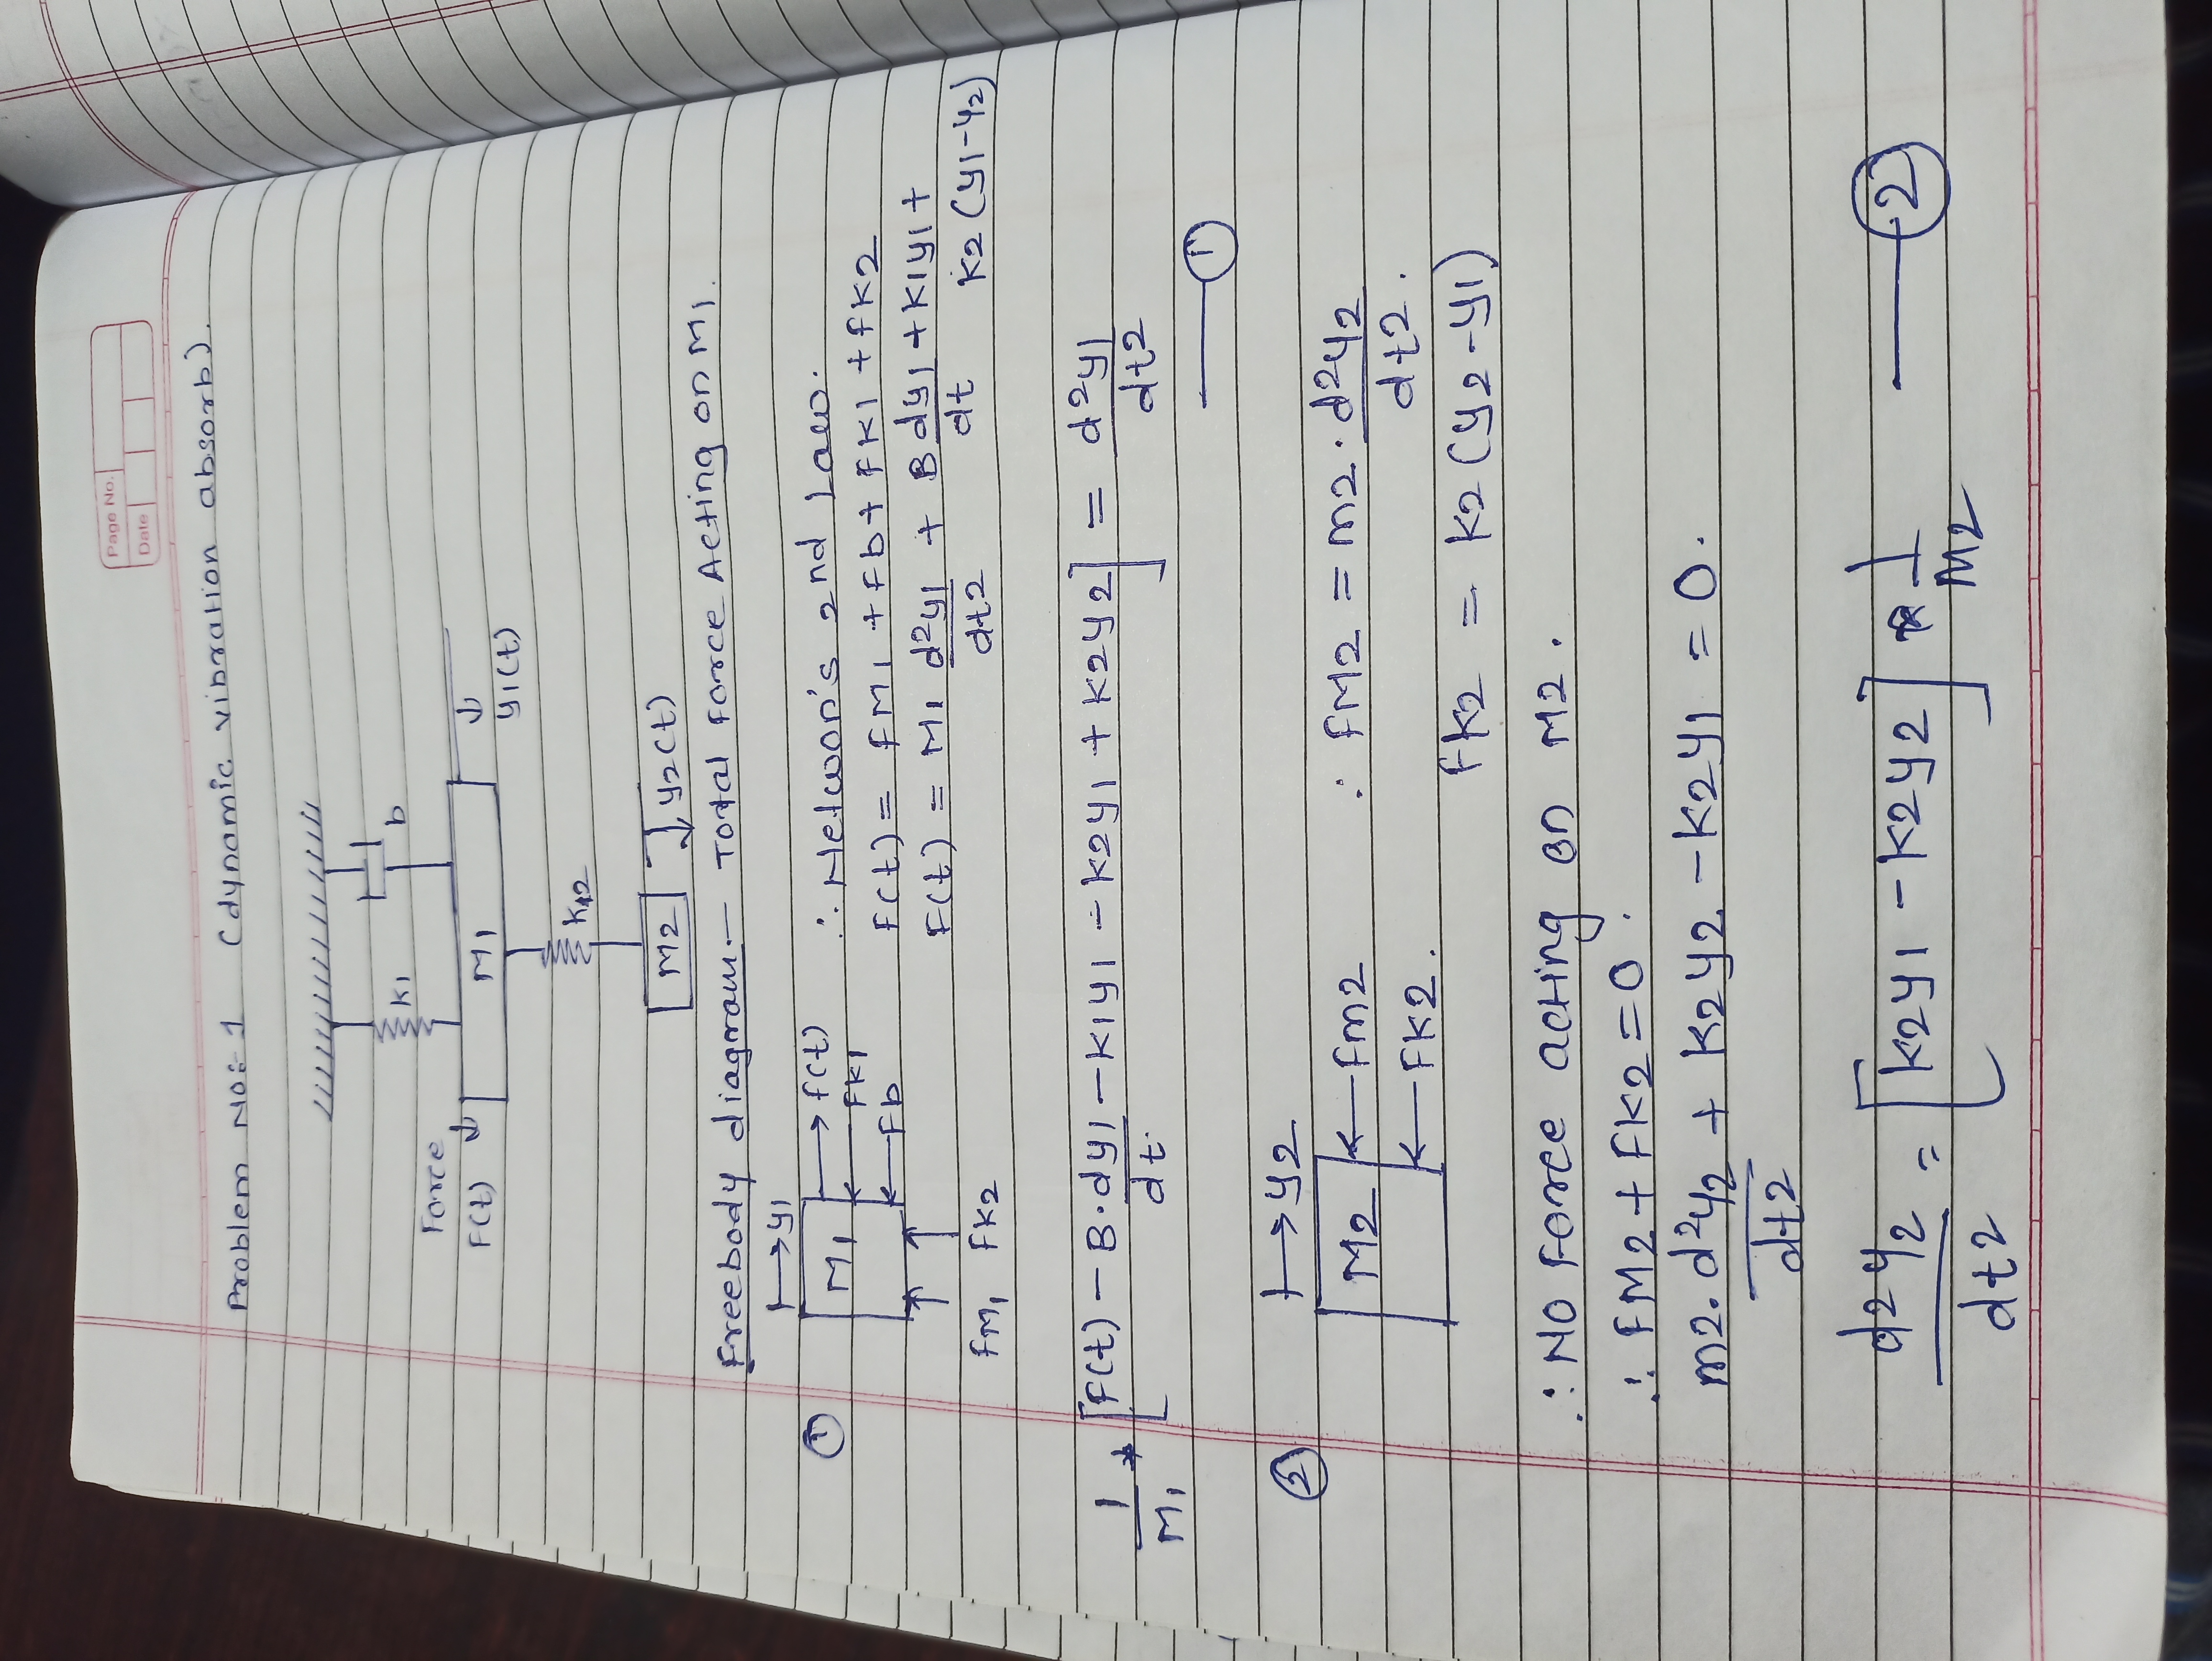 Page No.
Date
Problem No:- 1 (dynamic vibration absorb).
K1
b
Force
F(t)
M1
y1(t)
K12
M2
y2(t)
Freebody diagram:- Total Force Acting on M1.
y1
①
M1
f(t)
FK1
Fb
FM1 FK2
∴ Netwon's 2nd Law.
F(t) = FM1 + Fb + FK1 + FK2
F(t) = M1 d²y1/dt2 + B dy1/dt + K1y1 +
K2 (y1-y2)
1/M1 * [F(t) - B·dy1/dt - K1y1 - K2y1 + K2y2] = d²y1/dt2
①
② y2
M2
Fm2
FK2.
: FM2 = m2 · d²y2/dt2.
FK2 = K2 (y2-y1)
∴ NO Force acting on M2.
∴ FM2 + FK2 = 0.
m2. d²y2/dt2 + K2y2 - K2y1 = 0.
d2y2/dt2 = [K2y1 - K2y2] * 1/M2 ②